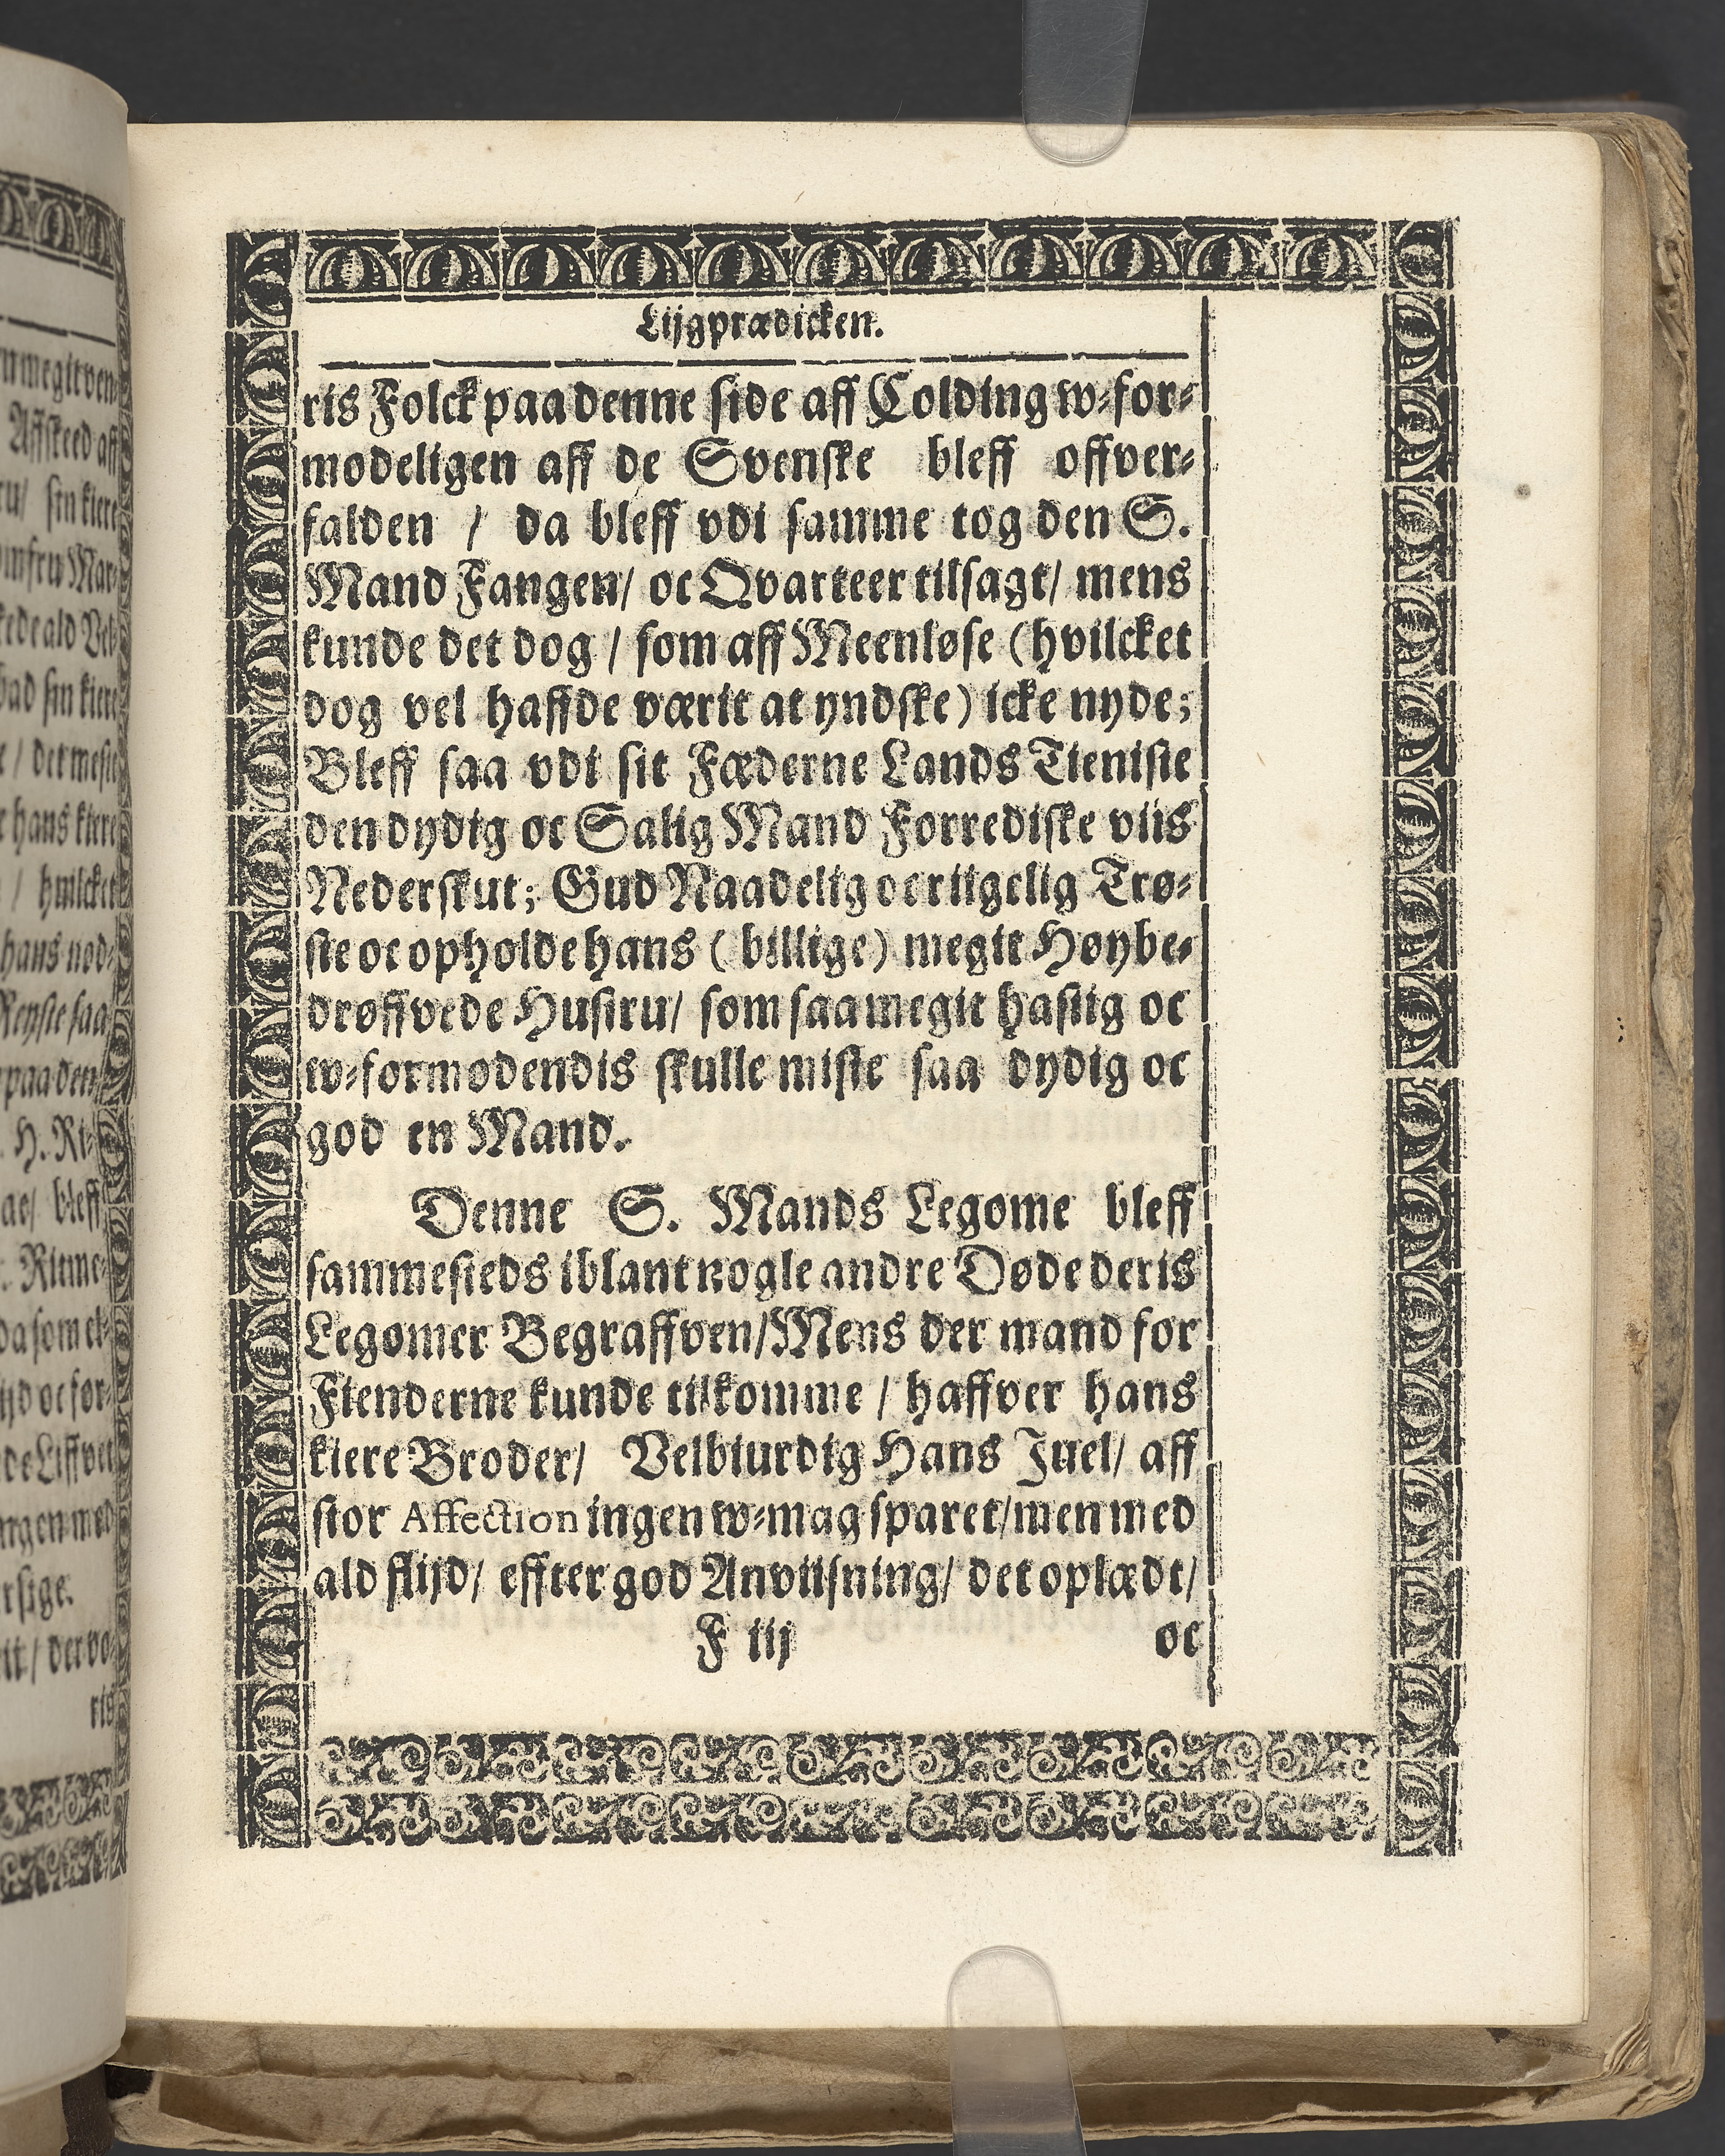 Lijgprædicken.
ris Folck paa denne side aff Colding w-for-
modeligen aff de Svenske bleff offver-
falden / da bleff vdi samme tog den S.
Mand Fangen/ oc Qvarteer tilsagt/ mens
kunde det dog / som aff Meenløse (hvilcket
dog vel haffde værit at yndske) icke nyde;
Bleff saa vdi sit Fæderne Lands Tieniste
den dydig oc Salig Mand Forrediske viis
Nederskut; Gud Naadelig oc riigelig Trø-
ste oc opholde hans ( billige) megit Høybe-
drøffvede Hustru/ som saa megit hastig oc
w-formodendis skulle miste saa dydig oc
god en Mand.
Denne S. Mands Legome bleff
sammesteds iblant nogle andre Døde deris
Legomer Begraffven/Mens der mand for
Fienderne kunde tilkomme / haffver hans
kiere Broder/ Velbiurdig Hans Juel/ aff
stor Affection ingen w-mag sparet/men med
ald flijd/ effter god Anviisning/ det oplædt/
F iij oc